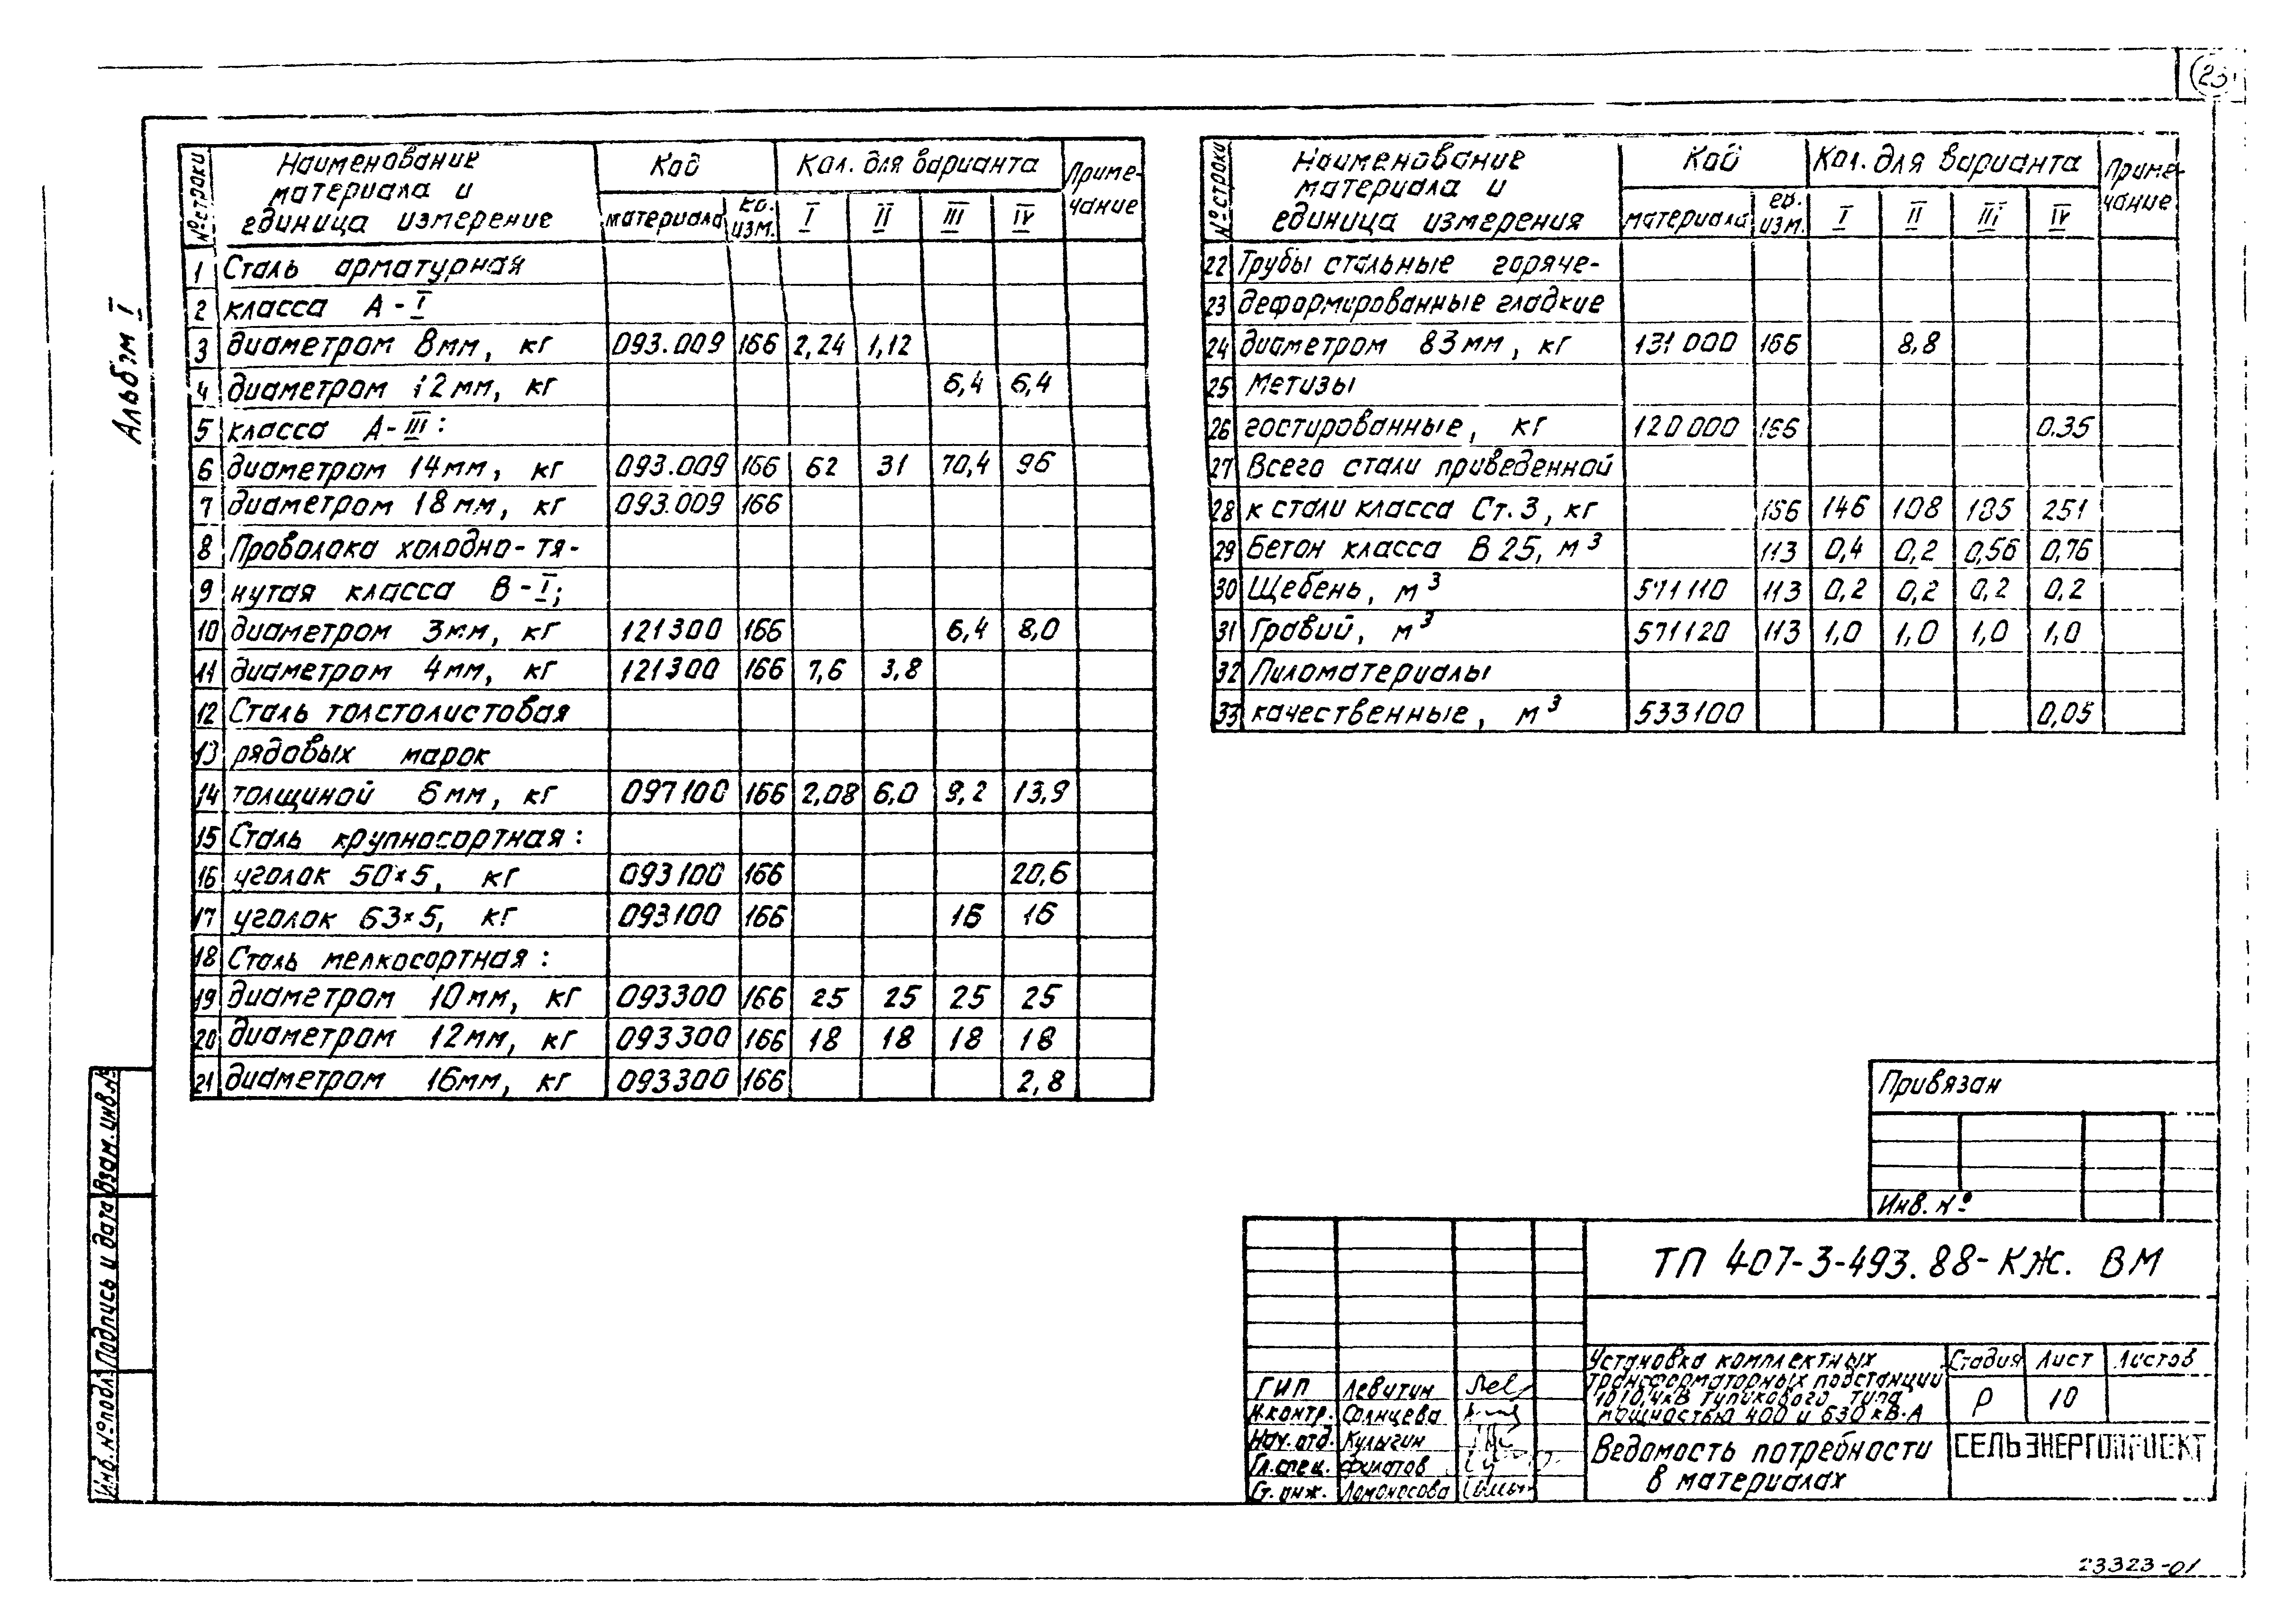 23
Альбом I
№ строки | Наименование материала и единица измерение | Код | Кол. для варианта | Приме-чание
материала | ед. изм. | I | II | III | IV
1 Сталь арматурная
2 класса А-I
3 диаметром 8мм, кг 093.009 166 2,24 1,12
4 диаметром 12мм, кг 6,4 6,4
5 класса А-III:
6 диаметром 14мм, кг 093.009 166 62 31 70,4 96
7 диаметром 18мм, кг 093.009 166
8 Проволока холодно-тя-
9 нутая класса В-I;
10 диаметром 3мм, кг 121300 166 6,4 8,0
11 диаметром 4мм, кг 121300 166 7,6 3,8
12 Сталь толстолистовая
13 рядовых марок
14 толщиной 6мм, кг 097100 166 2,08 6,0 9,2 13,9
15 Сталь крупносортная:
16 уголок 50×5, кг 093100 166 20,6
17 уголок 63×5, кг 093100 166 16 16
18 Сталь мелкосортная:
19 диаметром 10мм, кг 093300 166 25 25 25 25
20 диаметром 12мм, кг 093300 166 18 18 18 18
21 диаметром 16мм, кг 093300 166 2,8
№ строки | Наименование материала и единица измерения | Код | Кол. для варианта | Приме-чание
материала | ед. изм. | I | II | III | IV
22 Трубы стальные горяче-
23 деформированные гладкие
24 диаметром 83мм, кг 131000 166 8,8
25 Метизы
26 гостированные, кг 120000 166 0.35
27 Всего стали приведенной
28 к стали класса Ст.3, кг 166 146 108 185 251
29 Бетон класса В25, м³ 113 0,4 0,2 0,56 0,76
30 Щебень, м³ 571110 113 0,2 0,2 0,2 0,2
31 Гравий, м³ 571120 113 1,0 1,0 1,0 1,0
32 Пиломатериалы
33 качественные, м³ 533100 0,05
Привязан
Инв. №
ТП 407-3-493.88-КЖ. ВМ
Установка комплектных
трансформаторных подстанций
10/0,4кВ тупикового типа
мощностью 400 и 630 кВ·А
Стадия Лист Листов
Р 10
Ведомость потребности
в материалах
СЕЛЬЭНЕРГОПРОЕКТ
ГИП Левитин
Н.контр. Солнцева
Нач. отд. Кулыгин
Гл.спец. Филатов
Ст. инж. Ломоносова
Взам. инв. №
Подпись и дата
Инв. № подл.
23323-01